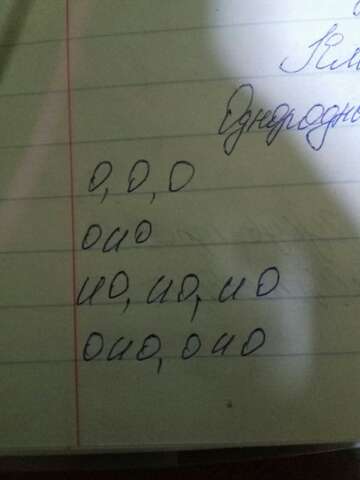 Км
Однородн
О, О, О
О и О
и О, и О, и О
О и О, О и О